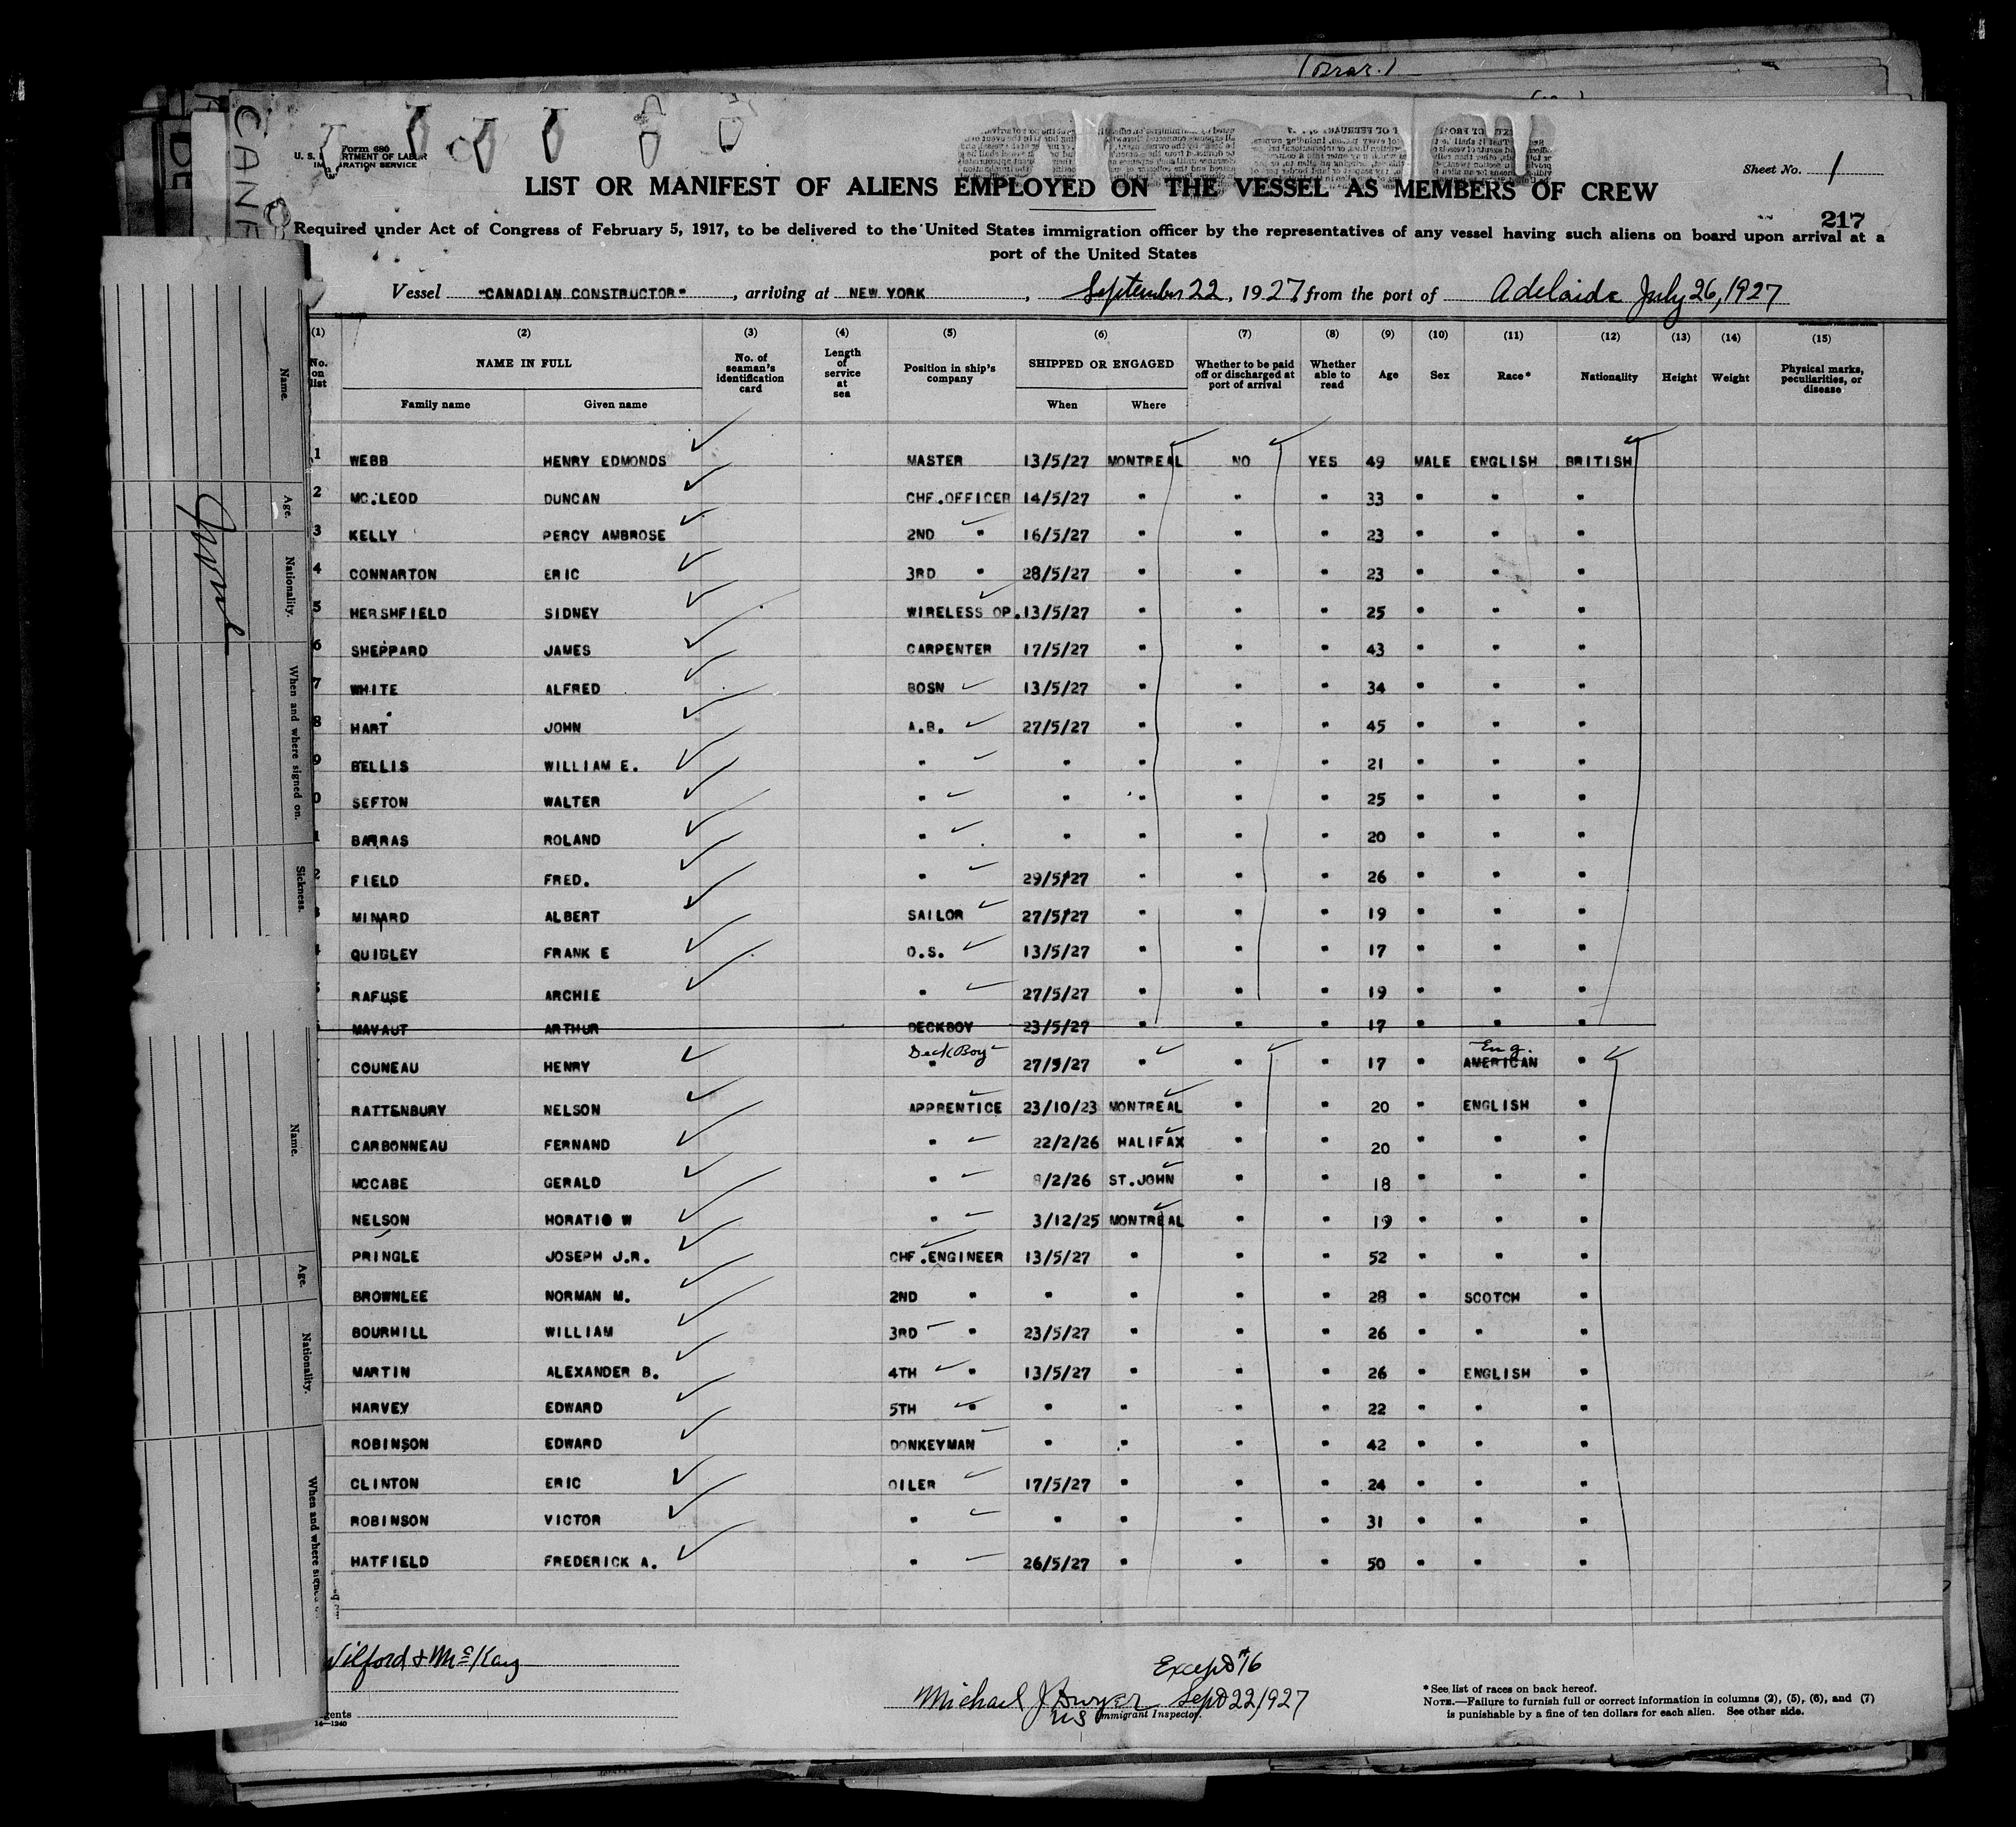 (Brar.)
CANF
DE
Form 680
U. S. DEPARTMENT OF LABOR
IMMIGRATION SERVICE
Sheet No. 1
LIST OR MANIFEST OF ALIENS EMPLOYED ON THE VESSEL AS MEMBERS OF CREW
217
Required under Act of Congress of February 5, 1917, to be delivered to the United States immigration officer by the representatives of any vessel having such aliens on board upon arrival at a
port of the United States
Vessel "CANADIAN CONSTRUCTOR", arriving at NEW YORK, September 22, 1927, from the port of Adelaide July 26, 1927
(1) (2) (3) (4) (5) (6) (7) (8) (9) (10) (11) (12) (13) (14) (15)
No. on list NAME IN FULL No. of seaman's identification card Length of service at sea Position in ship's company SHIPPED OR ENGAGED Whether to be paid off or discharged at port of arrival Whether able to read Age Sex Race* Nationality Height Weight Physical marks, peculiarities, or disease
Family name Given name When Where
1 WEBB HENRY EDMONDS MASTER 13/5/27 MONTREAL NO YES 49 MALE ENGLISH BRITISH
2 MC.LEOD DUNCAN CHF.OFFICER 14/5/27 " " " 33 " " "
3 KELLY PERCY AMBROSE 2ND " 16/5/27 " " " 23 " " "
4 CONNARTON ERIC 3RD " 28/5/27 " " " 23 " " "
5 HERSHFIELD SIDNEY WIRELESS OP. 13/5/27 " " " 25 " " "
6 SHEPPARD JAMES CARPENTER 17/5/27 " " " 43 " " "
7 WHITE ALFRED BOSN 13/5/27 " " " 34 " " "
8 HART JOHN A.B. 27/5/27 " " " 45 " " "
9 BELLIS WILLIAM E. " " " " " 21 " " "
0 SEFTON WALTER " " " " " 25 " " "
1 BARRAS ROLAND " " " " " 20 " " "
2 FIELD FRED. " 29/5/27 " " " 26 " " "
3 MINARD ALBERT SAILOR 27/5/27 " " " 19 " " "
4 QUIGLEY FRANK E O.S. 13/5/27 " " " 17 " " "
5 RAFUSE ARCHIE " 27/5/27 " " " 19 " " "
MAVAUT ARTHUR DECKBOY 23/5/27 " " " 17 " " "
Deck Boy Eng.
COUNEAU HENRY " 27/5/27 " " " 17 " AMERICAN "
RATTENBURY NELSON APPRENTICE 23/10/23 MONTREAL " " 20 " ENGLISH "
CARBONNEAU FERNAND " 22/2/26 HALIFAX " " 20 " " "
MCCABE GERALD " 8/2/26 ST.JOHN " " 18 " " "
NELSON HORATIO W " 3/12/25 MONTREAL " " 19 " " "
PRINGLE JOSEPH J.R. CHF.ENGINEER 13/5/27 " " " 52 " " "
BROWNLEE NORMAN M. 2ND " " " " " 28 " SCOTCH "
BOURHILL WILLIAM 3RD " 23/5/27 " " " 26 " " "
MARTIN ALEXANDER B. 4TH " 13/5/27 " " " 26 " ENGLISH "
HARVEY EDWARD 5TH " " " " " 22 " " "
ROBINSON EDWARD DONKEYMAN " " " " 42 " " "
CLINTON ERIC OILER 17/5/27 " " " 24 " " "
ROBINSON VICTOR " " " " " 31 " " "
HATFIELD FREDERICK A. " 26/5/27 " " " 50 " " "
Wilford & McKay
Except 16
Michael J Dwyer Sept 22 1927
US Immigrant Inspector.
gents
14—1240
* See list of races on back hereof.
NOTE.—Failure to furnish full or correct information in columns (2), (5), (6), and (7)
is punishable by a fine of ten dollars for each alien. See other side.
Name.
Age.
Nationality.
When and where signed on.
Sickness.
Name.
Age.
Nationality.
When and where signed